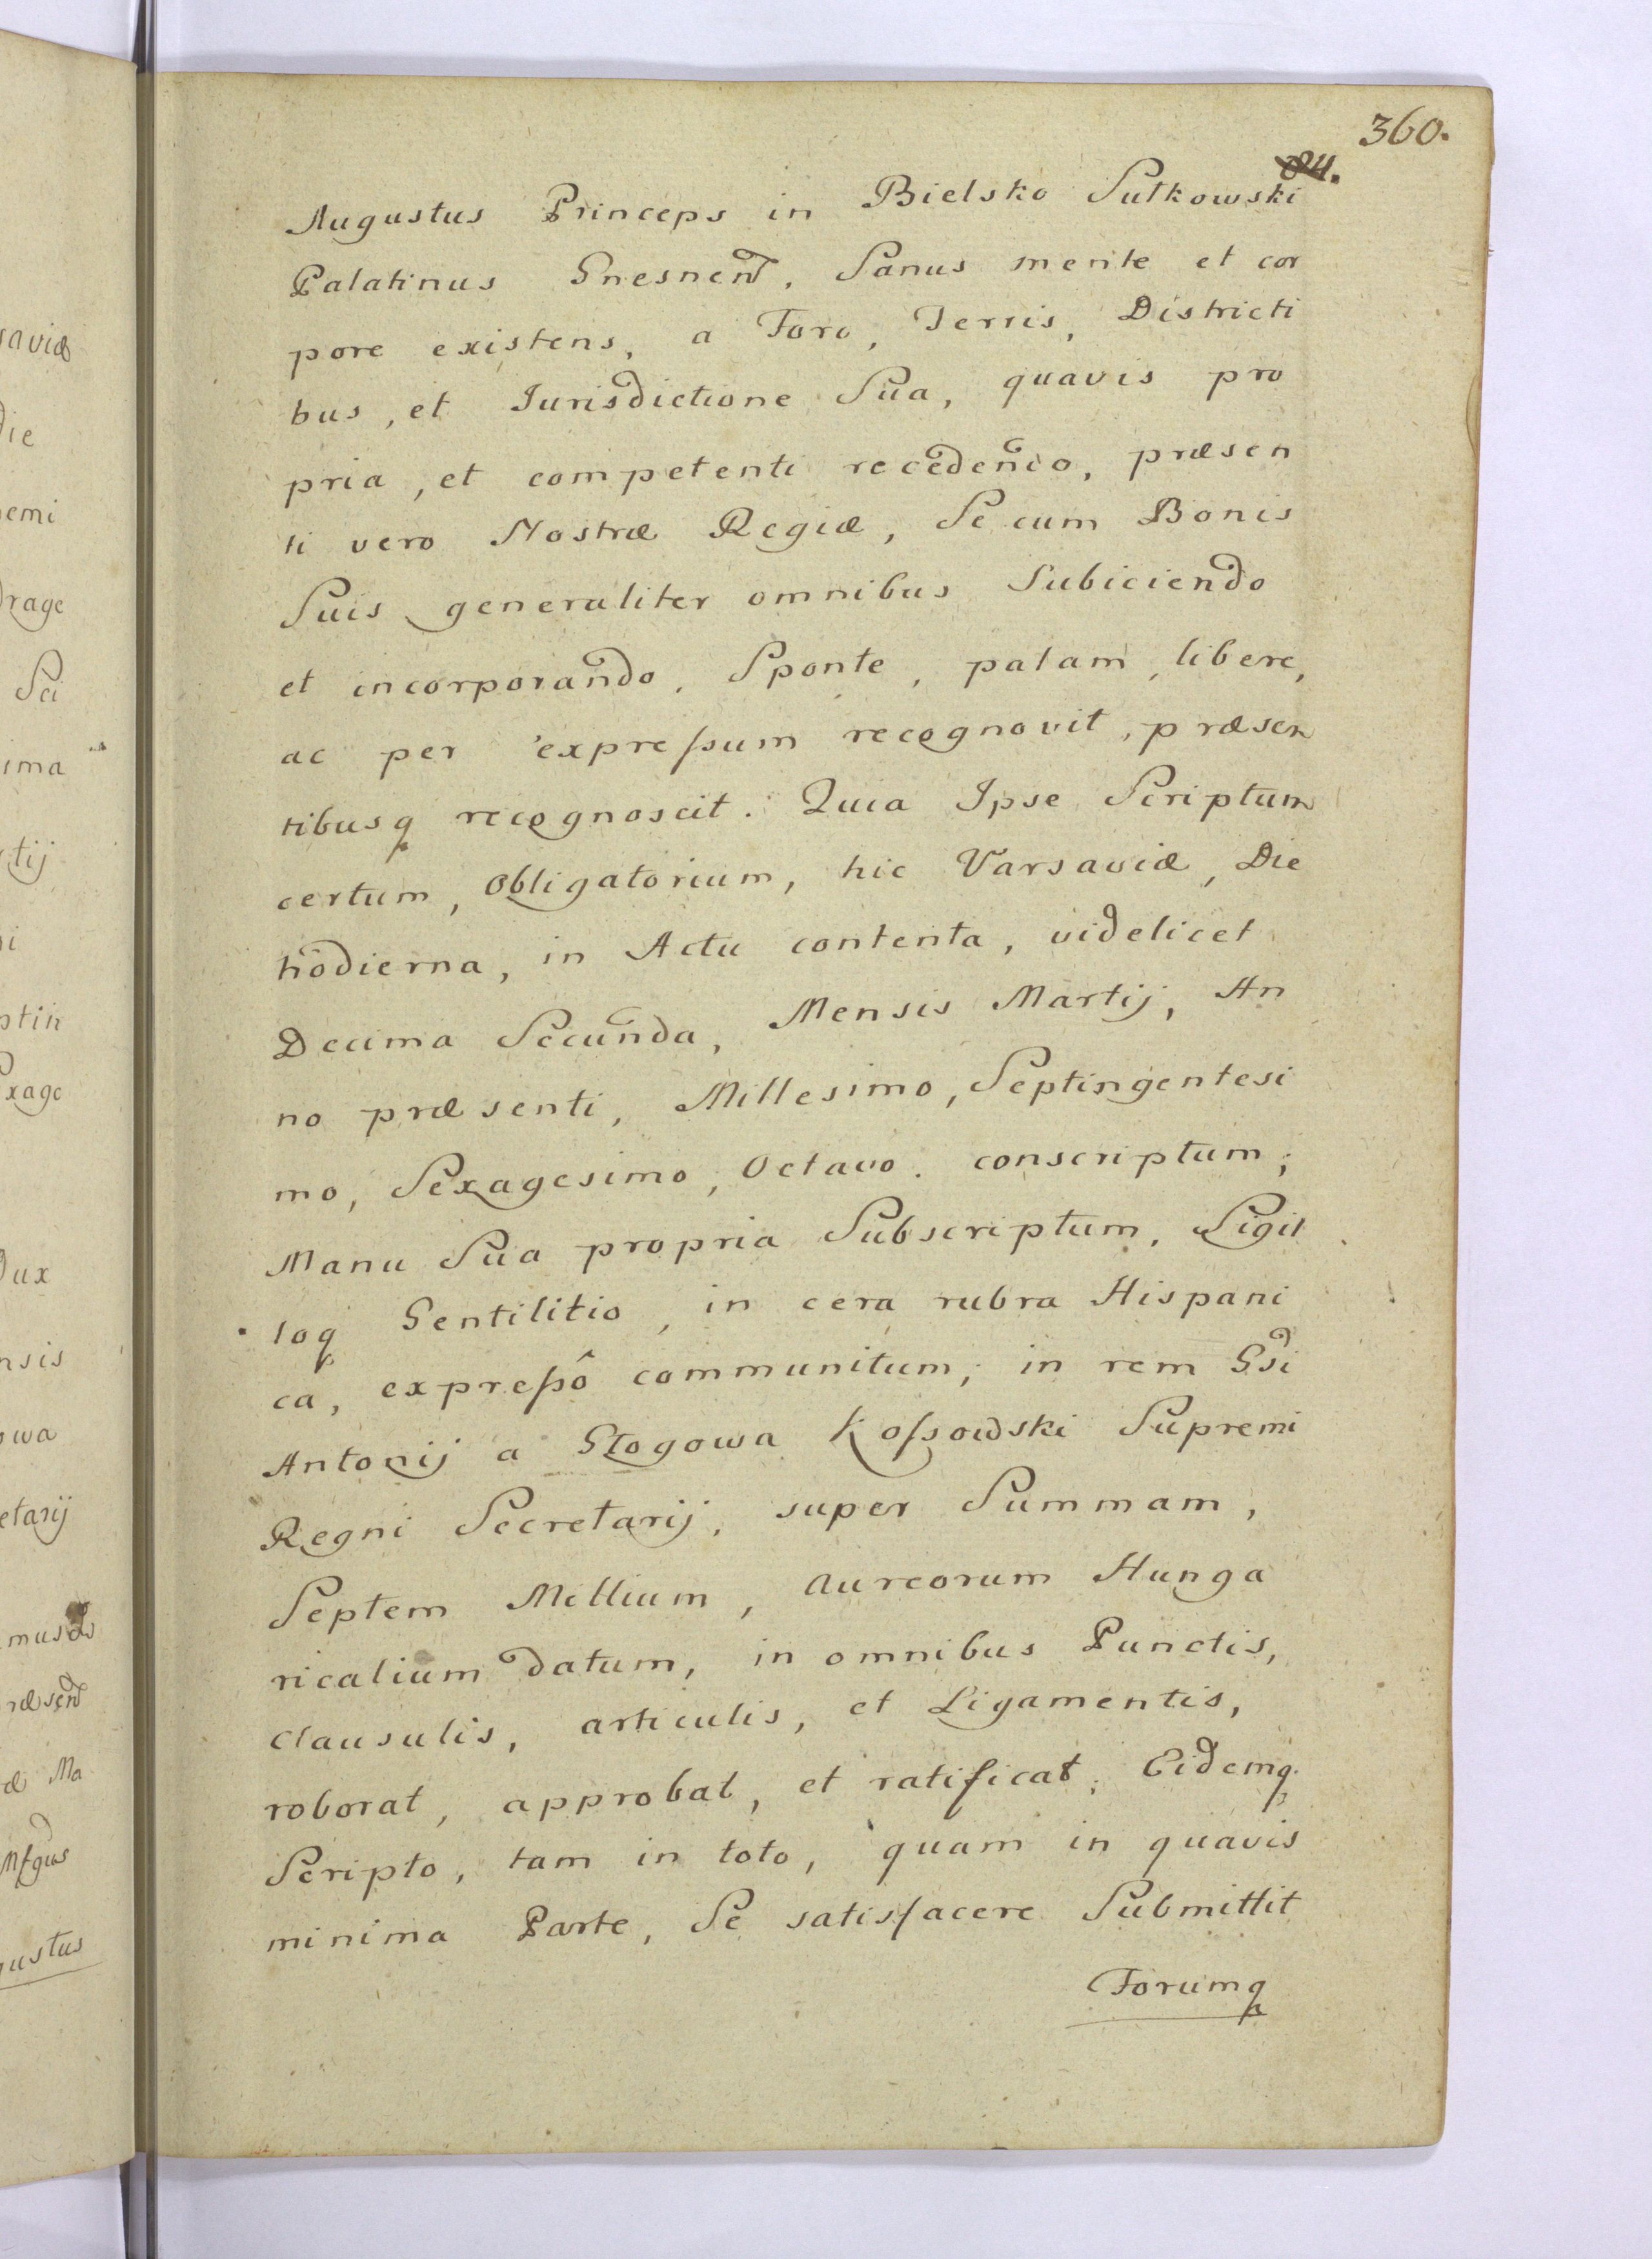 360.
84.
Augustus Princeps in Bielsko Sułkowski
Palatinus Gnesnen, Sanus mente et cor
pore existens, a Foro, Terris, Districti
bus, et Iurisdictione Sua, quavis pro
pria, et competenti recedendo, præsen
ti vero Nostræ Regiæ, Se cum Bonis
Suis generaliter omnibus Subiiciendo
et incorporando, Sponte, palam, libere,
ac per expreſsum recognovit, præsen
tibusq recognoscit. Quia Ipse Scriptum
certum, Obligatorium, hic Varsaviæ, Die
hodierna, in Actu contenta, videlicet
Decima Secunda, Mensis Martij, An
no præsenti, Millesimo, Septingentesi
mo, Sexagesimo, Octavo. conscriptum;
Manu Sua propria Subscriptum, Sigil
loq Gentilitio, in cera rubra Hispani
ca, expreſsô communitum; in rem Gsi
Antonij a Głogowa Koſsowski Supremi
Regni Secretarij, super Summam,
Septem Millium, Aureorum Hunga
ricalium datum, in omnibus Punctis,
Clausulis, articulis, et Ligamentis,
roborat, approbat, et ratificat; Eidemq
Scripto, tam in toto, quam in quavis
minima Parte, Se satisfacere Submittit
Forumq
saviæ
die
emi
drage
Sei
ima
tij
i
ptin
xage
Dux
nsis
owa
etarij
æsen
æ Ma
gustus